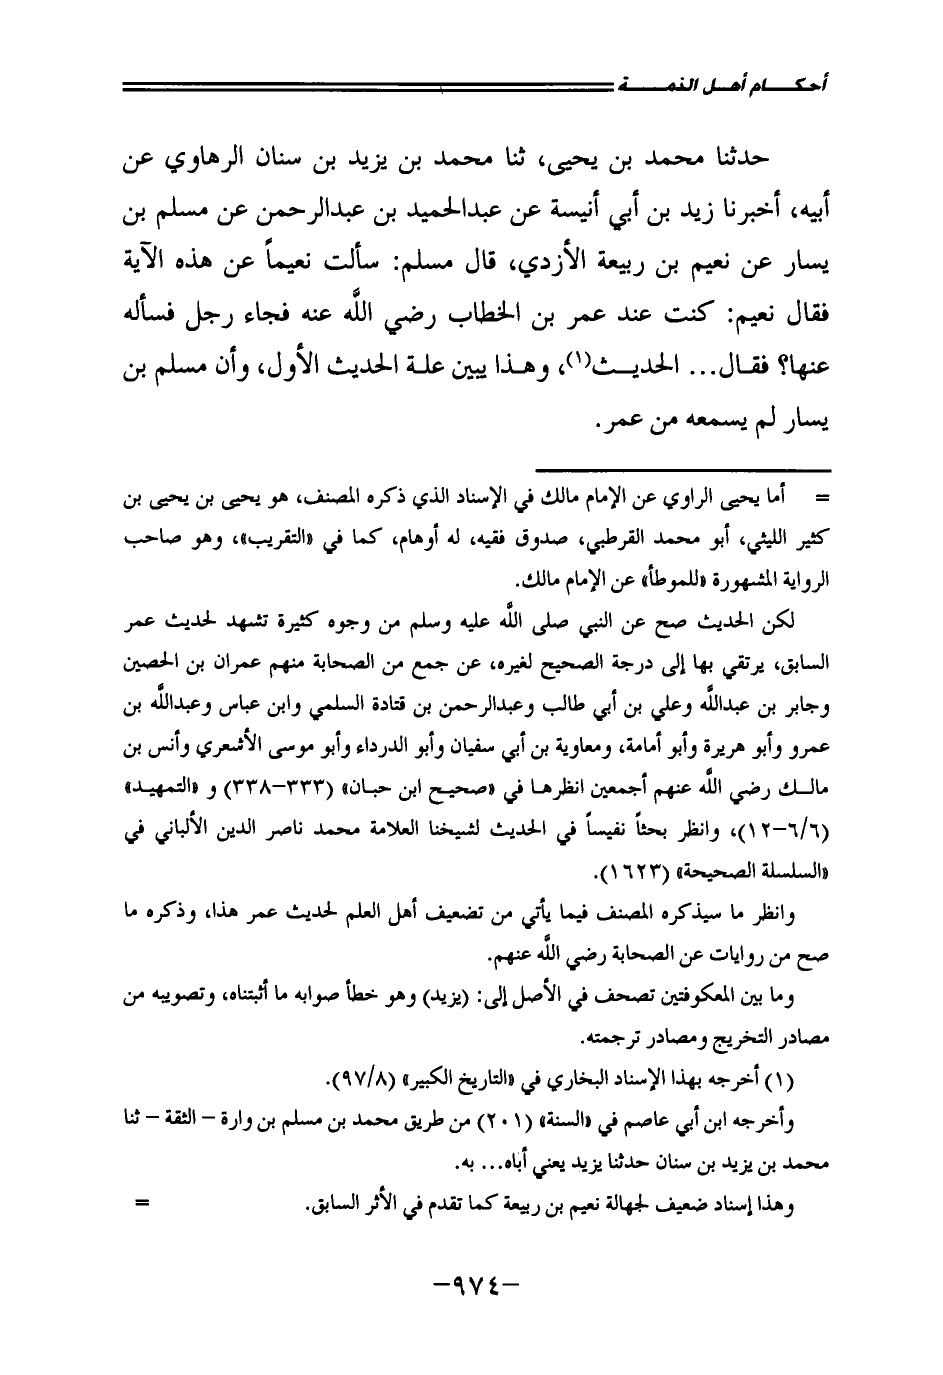 أحكـــام أهـل الذمــــة
حدثنا محمد بن يحيى، ثنا محمد بن يزيد بن سنان الرهاوي عن
أبيه، أخبرنا زيد بن أبي أنيسة عن عبدالحميد بن عبدالرحمن عن مسلم بن
يسار عن نعيم بن ربيعة الأزدي، قال مسلم: سألت نعيماً عن هذه الآية
فقال نعيم: كنت عند عمر بن الخطاب رضي اللَّه عنه فجاء رجل فسأله
عنها؟ فقـال... الحديــث(١)، وهـذا يبين علـة الحديث الأول، وأن مسلم بن
يسار لم يسمعه من عمر.
= أما يحيى الراوي عن الإمام مالك في الإسناد الذي ذكره المصنف، هو يحيى بن يحيى بن
كثير الليثي، أبو محمد القرطبي، صدوق فقيه، له أوهام، كما في «التقريب»، وهو صاحب
الرواية المشهورة «للموطأ» عن الإمام مالك.
لكن الحديث صح عن النبي صلى اللَّه عليه وسلم من وجوه كثيرة تشهد لحديث عمر
السابق، يرتقي بها إلى درجة الصحيح لغيره، عن جمع من الصحابة منهم عمران بن الحصين
وجابر بن عبداللَّه وعلي بن أبي طالب وعبدالرحمن بن قتادة السلمي وابن عباس وعبداللَّه بن
عمرو وأبو هريرة وأبو أمامة، ومعاوية بن أبي سفيان وأبو الدرداء وأبو موسى الأشعري وأنس بن
مالـك رضي اللَّه عنهم أجمعين انظرهـا في «صحيـح ابن حبـان» (٣٣٣-٣٣٨) و «التمهيـد»
(٦/٦-١٢)، وانظر بحثاً نفيساً في الحديث لشيخنا العلامة محمد ناصر الدين الألباني في
«السلسلة الصحيحة» (١٦٢٣).
وانظر ما سيذكره المصنف فيما يأتي من تضعيف أهل العلم لحديث عمر هذا، وذكره ما
صح من روايات عن الصحابة رضي اللَّه عنهم.
وما بين المعكوفتين تصحف في الأصل إلى: (يزيد) وهو خطأ صوابه ما أثبتناه، وتصويبه من
مصادر التخريج ومصادر ترجمته.
(١) أخرجه بهذا الإسناد البخاري في «التاريخ الكبير» (٩٧/٨).
وأخرجه ابن أبي عاصم في «السنة» (٢٠١) من طريق محمد بن مسلم بن وارة – الثقة – ثنا
محمد بن يزيد بن سنان حدثنا يزيد يعني أباه... به.
وهذا إسناد ضعيف لجهالة نعيم بن ربيعة كما تقدم في الأثر السابق. =
-٩٧٤-